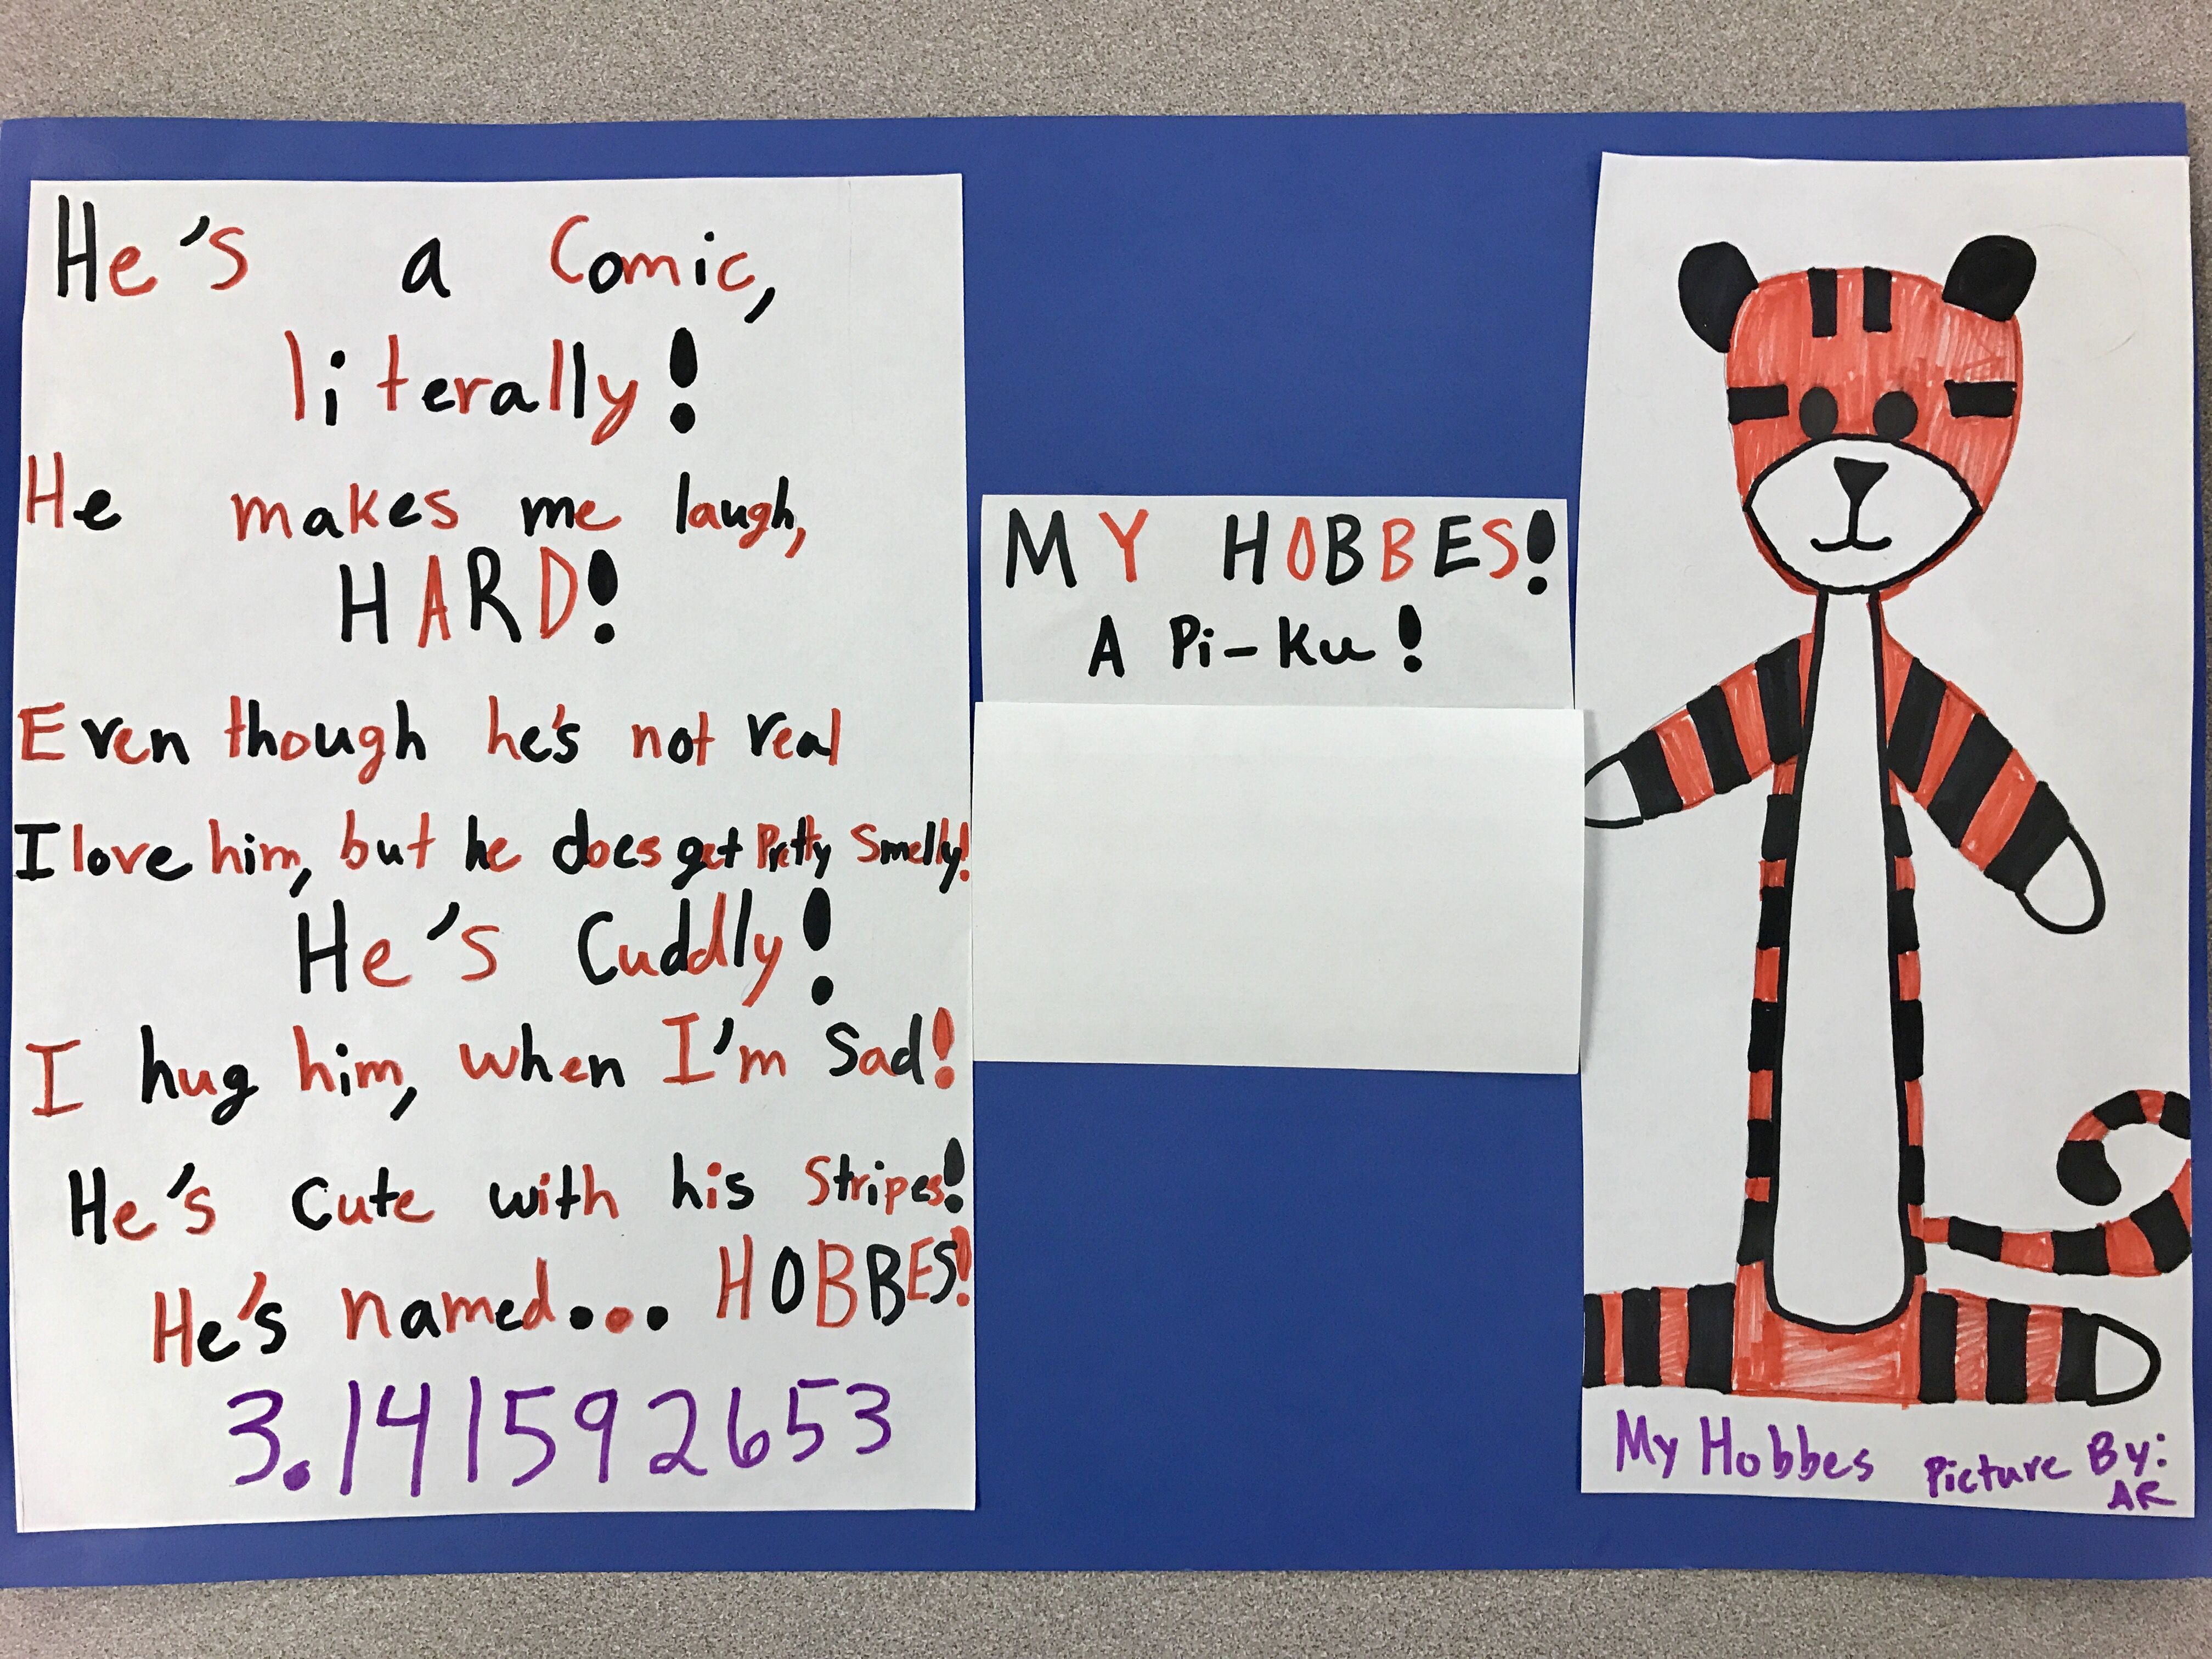 He's a Comic,
literally!
He makes me laugh,
HARD!
Even though he's not real
I love him, but he does get Pretty Smelly!
He's Cuddly!
I hug him, when I'm Sad!
He's cute with his Stripes!
He's named... HOBBES!
3.141592653
MY HOBBES!
A Pi-Ku!
My Hobbes Picture By:
AR